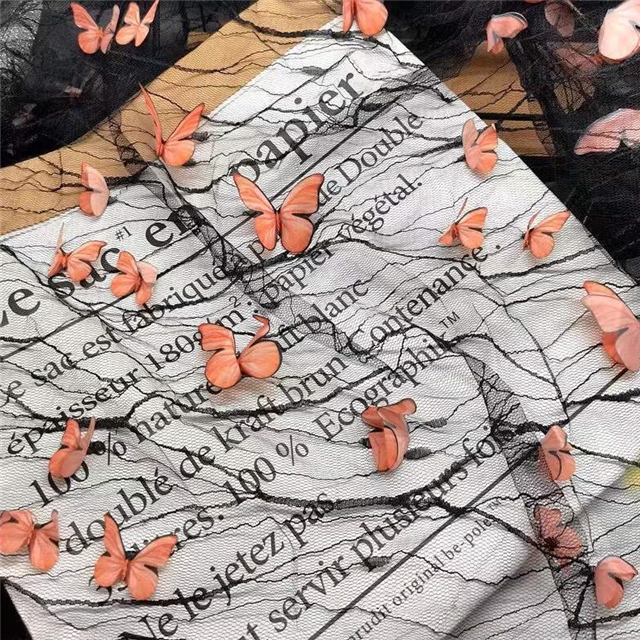 Le sac en papier
#1
Le sac est fabriqué Double
épaisseur 180g/m². papier végétal.
100 % nature blanc
doublé de kraft brun Contenance .
100 % Ecographi ™
Ne le jetez pas
ut servir plusieurs foi
original be-pole™